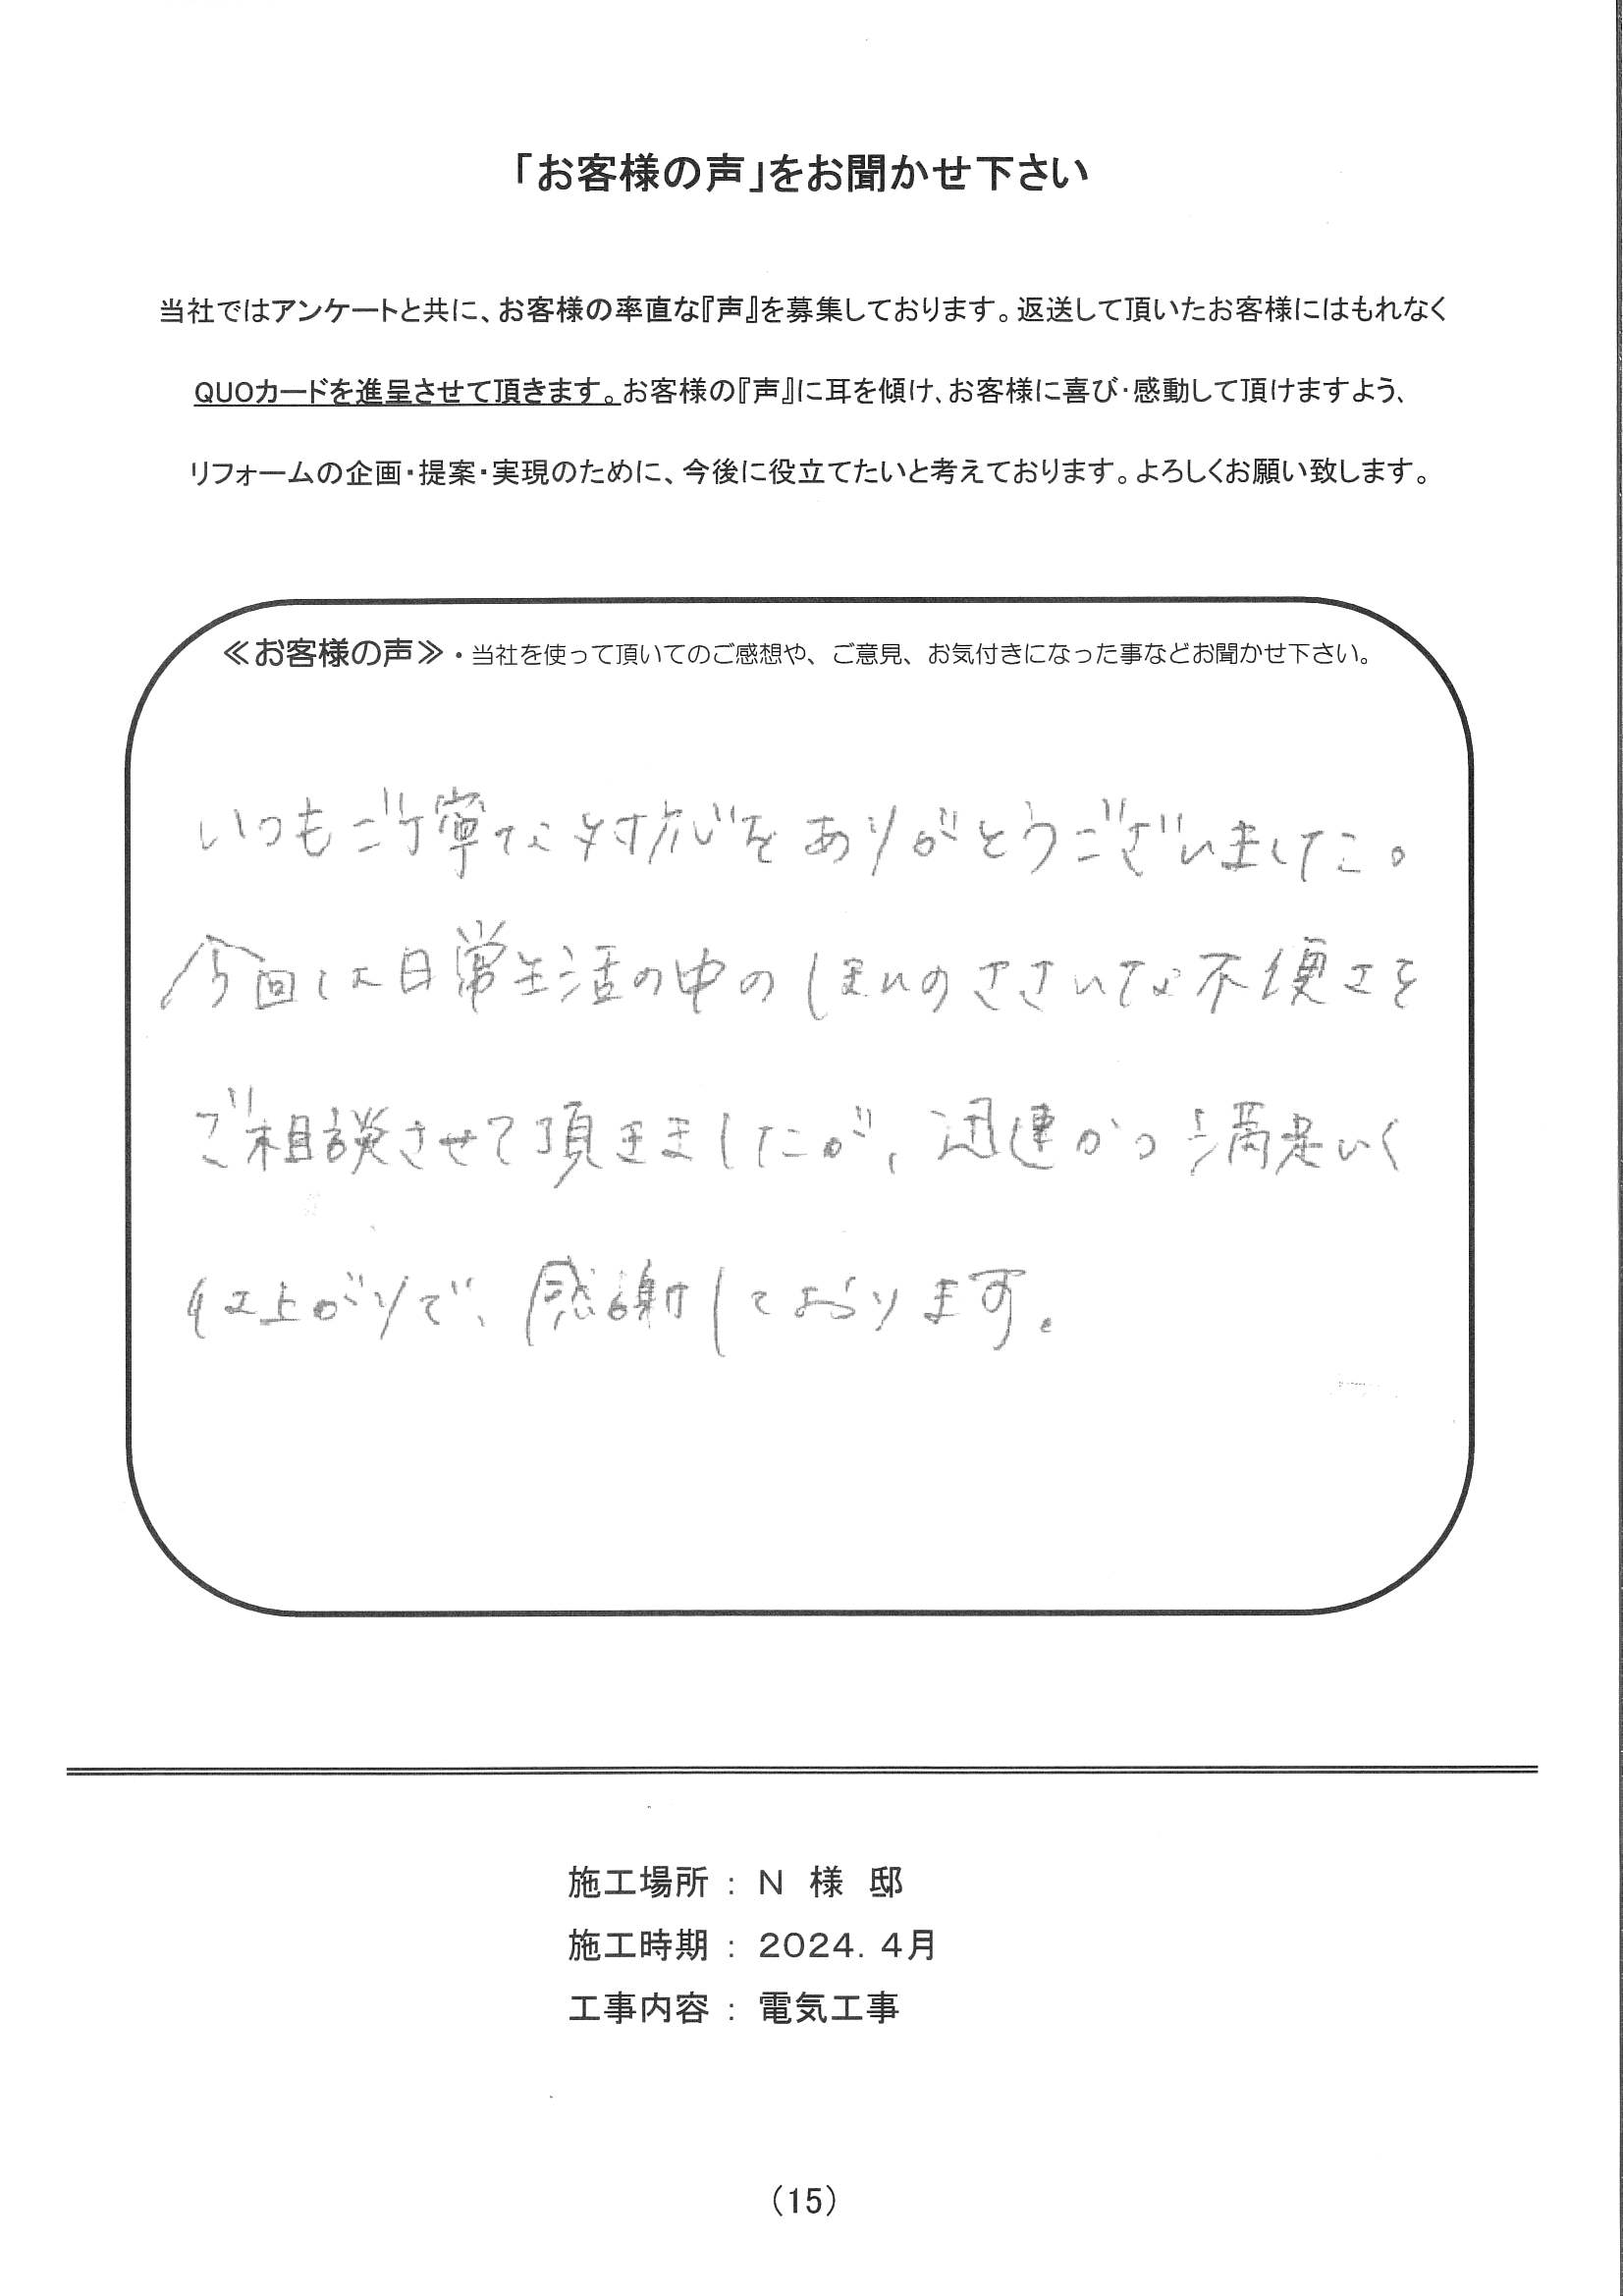 「お客様の声」をお聞かせ下さい
当社ではアンケートと共に、お客様の率直な『声』を募集しております。返送して頂いたお客様にはもれなく
QUOカードを進呈させて頂きます。お客様の『声』に耳を傾け、お客様に喜び・感動して頂けますよう、
リフォームの企画・提案・実現のために、今後に役立てたいと考えております。よろしくお願い致します。
≪お客様の声≫・当社を使って頂いてのご感想や、ご意見、お気付きになった事などお聞かせ下さい。
いつもご丁寧な対応をありがとうございました。
今回は日常生活の中のほんのささいな不便さを
ご相談させて頂きましたが、迅速かつ満足いく
仕上がりで、感謝しております。
施工場所 : N 様 邸
施工時期 : 2024. 4月
工事内容 : 電気工事
(15)